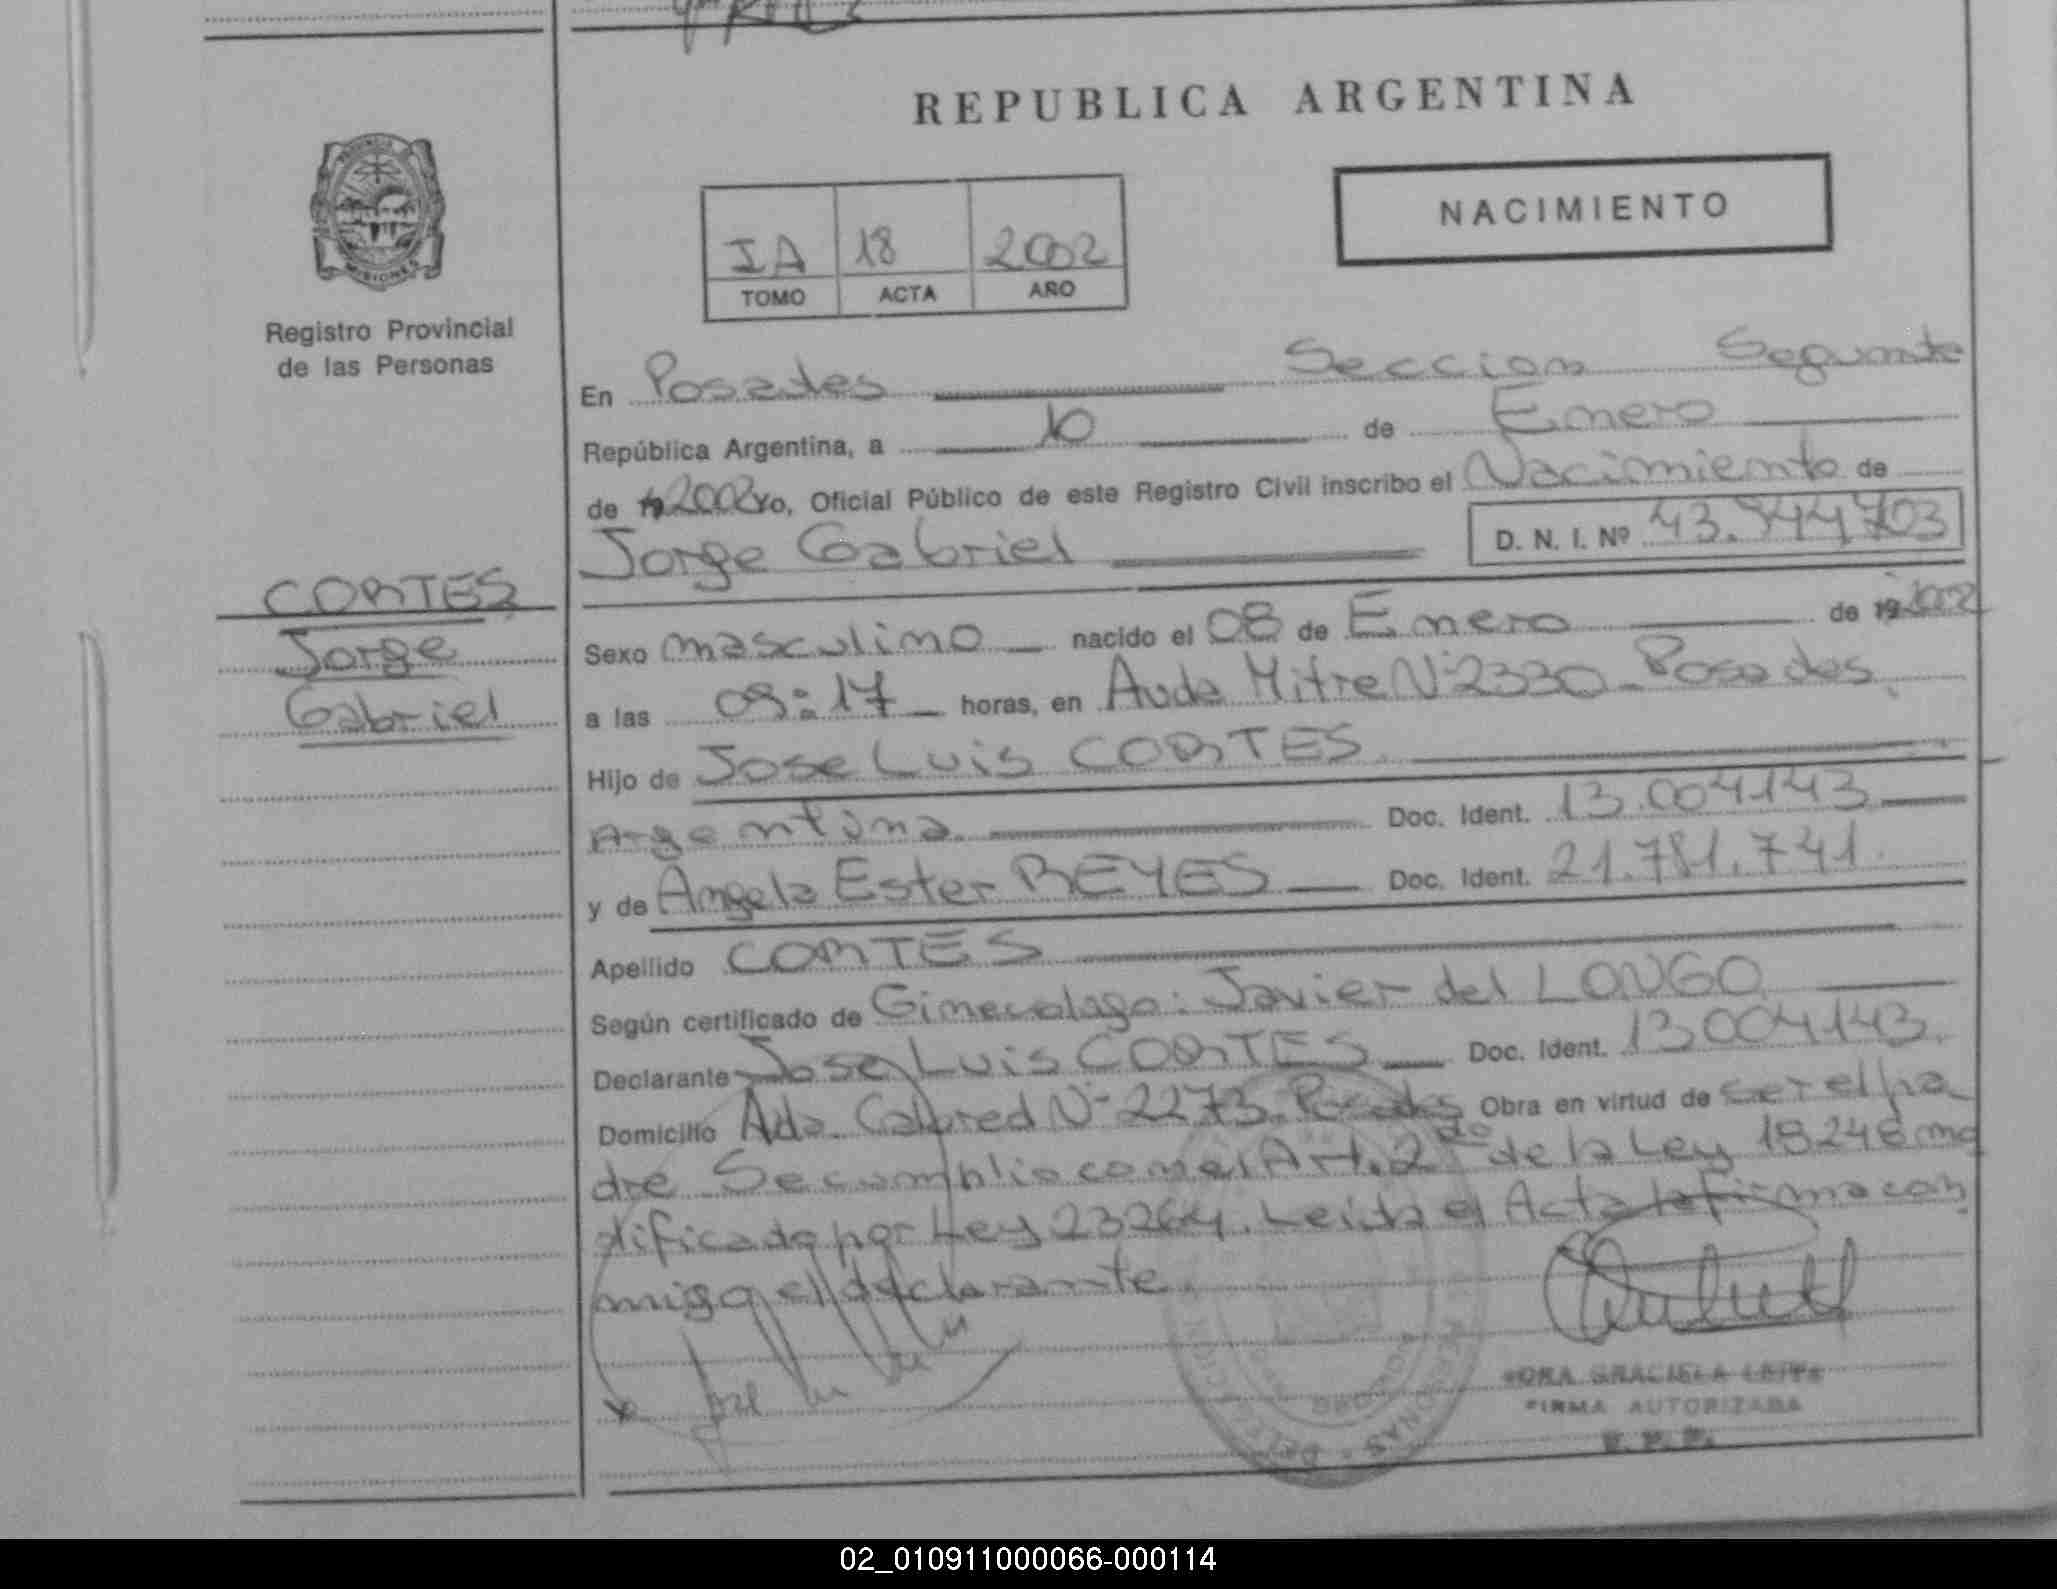 REPUBLICA ARGENTINA
NACIMIENTO
IA 18 2002
TOMO ACTA AÑO
MISIONES
Registro Provincial
de las Personas
En Posadas Seccion Segunda
República Argentina, a 10 de Enero
de 19 2002 Yo, Oficial Público de este Registro Civil inscribo el Nacimiento de
Jorge Gabriel D. N. I. Nº 43.944703
CORTES
Jorge
Gabriel
Sexo masculino nacido el 08 de Enero de 19 2002
a las 09:17 horas, en Avda Mitre Nº 2330 Posadas.
Hijo de Jose Luis CORTES
Argentina Doc. Ident. 13.004143
y de Angela Ester REYES Doc. Ident. 21.781.741.
Apellido CORTES
Según certificado de Ginecologo: Javier del LONGO
Declarante Jose Luis CORTES Doc. Ident. 13004143.
Domicilio Avda. Cabred Nº 2273. Posadas Obra en virtud de ser el pa
dre Se cumplio con el Art. 2do de la Ley 18248 mo
dificada por Ley 23264. Leida el Acta la firma con
migo el declarante.
DRA GRACIELA
FIRMA AUTORIZADA
02_010911000066-000114